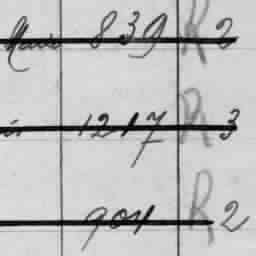 Maria 839 R 2
1217 R 3
904 R 2